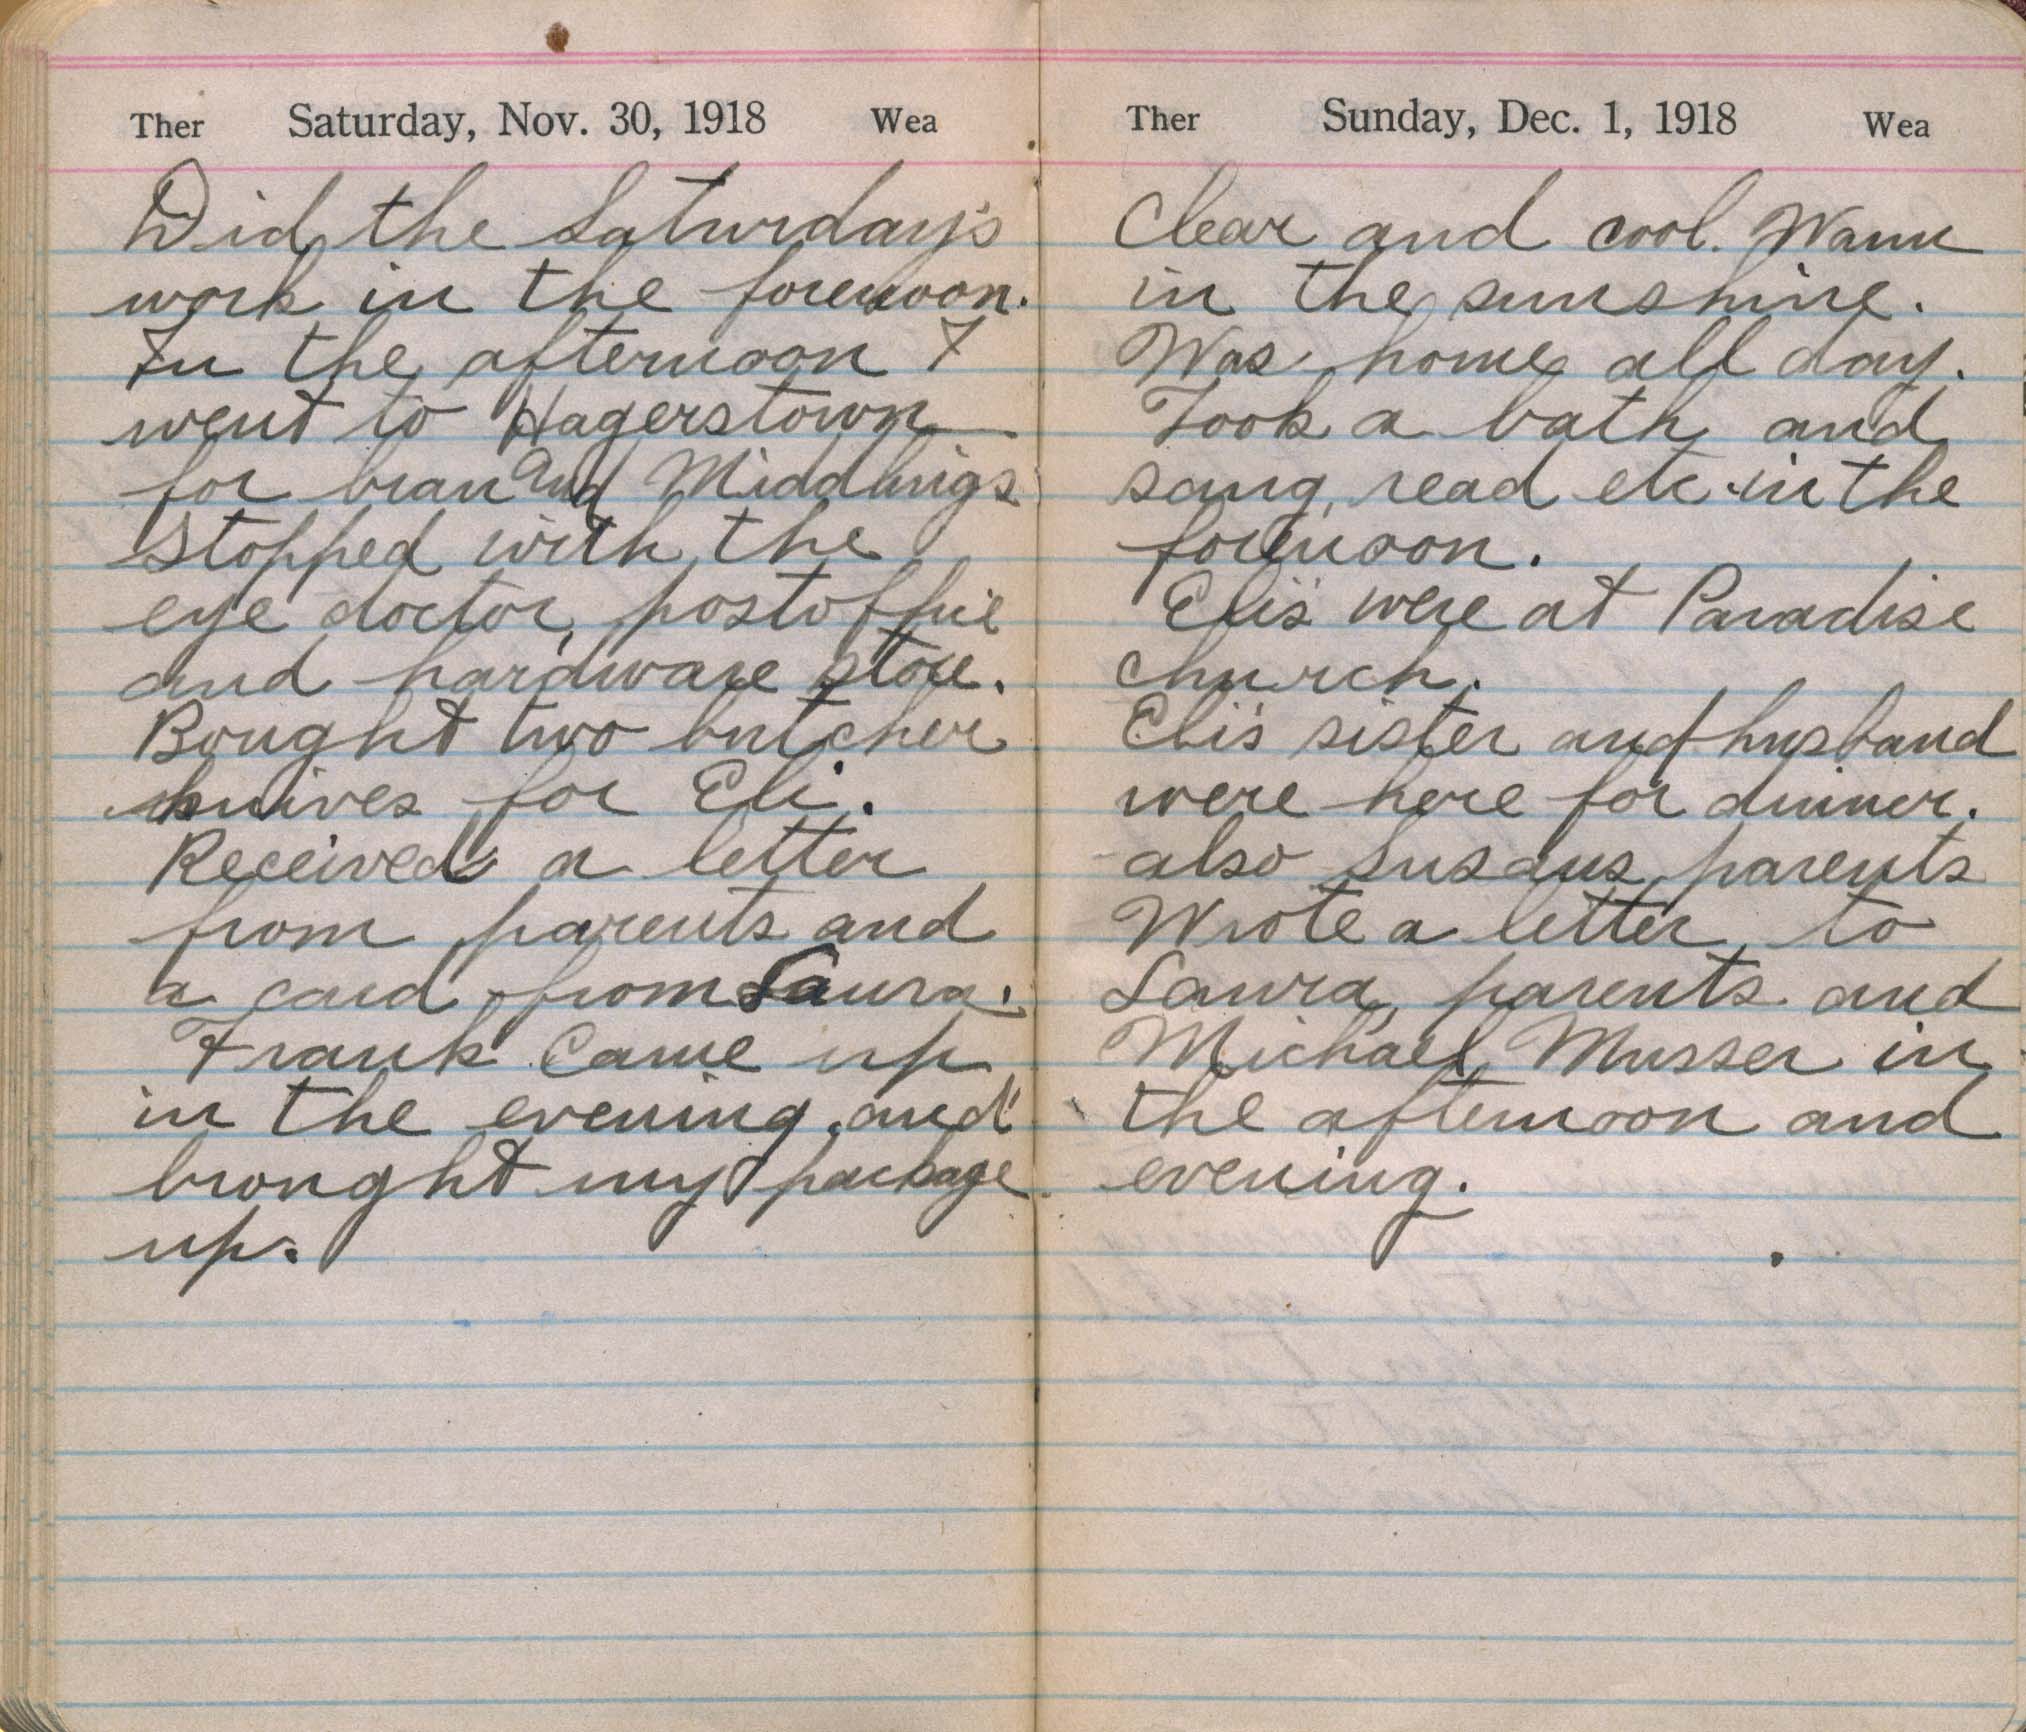 Ther Saturday, Nov. 30, 1918 Wea
Did the Saturday's
work in the forenoon.
In the afternoon I
went to Hagerstown
for bran and Middlings
Stopped with the
eye doctor, postoffice
and hardware store.
Bought two butcher
knives for Eli.
Received a letter
from parents and
a card from Laura.
Frank came up
in the evening and
brought my package
up.
Ther Sunday, Dec. 1, 1918 Wea
Clear and cool. Warm
in the sunshine.
Was home all day.
Took a bath and
sang, read etc. in the
forenoon.
Eli's were at Paradise
church.
Eli's sister and husband
were here for dinner.
also Susans parents
Wrote a letter to
Laura, parents and
Michael Musser in
the afternoon and
evening.